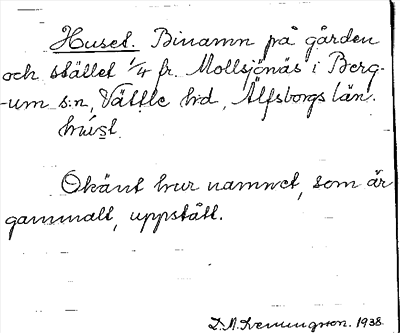 Huset. Binamn på gården
och stället 1/4 fr. Mollsjönäs i Berg-
-um s:n, Vättle h-d, Älfsborgs län.
hús̠t.
Okänt hur namnet, som är
gammalt, uppstått.
1938.